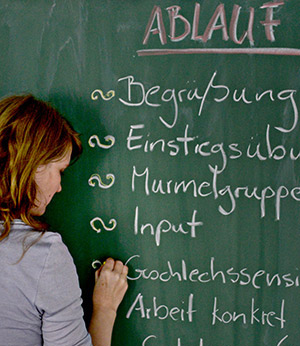 ABLAUF
Begrüßung
Einstiegsübu
Murmelgruppe
Input
Gschlechssensi
Arbeit konkret